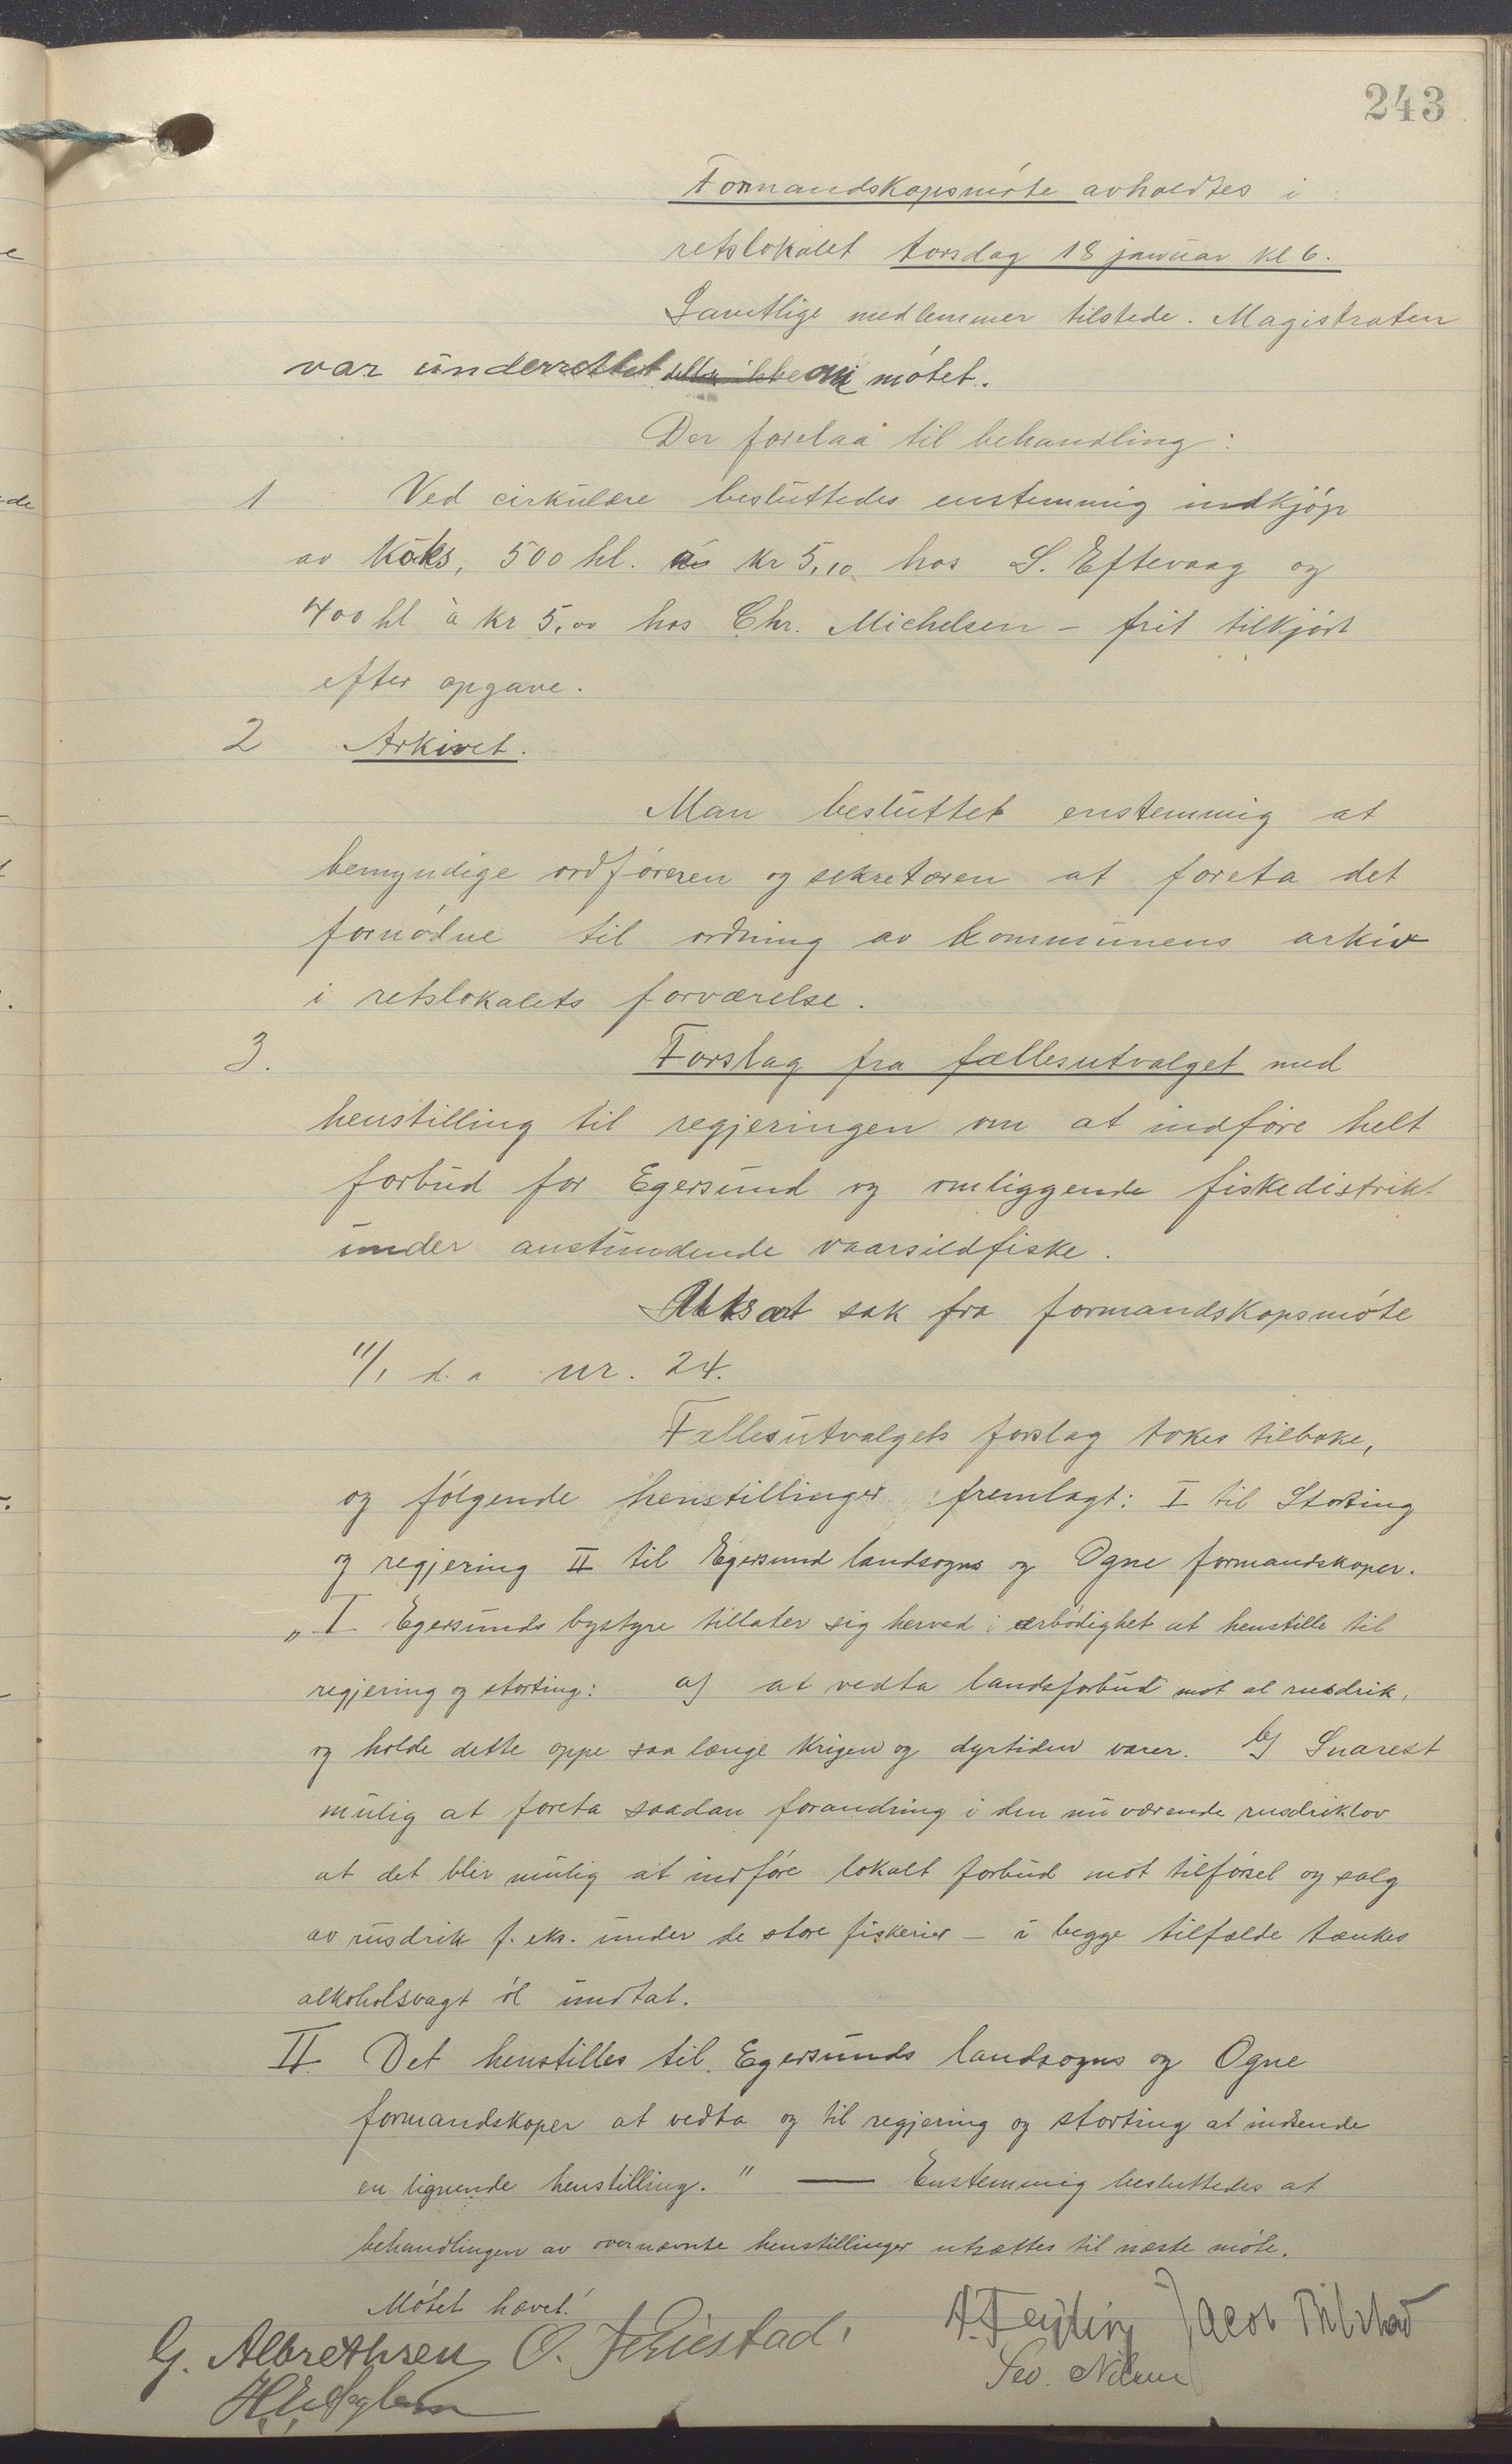 243
Formandskapsmöte avholdtes i
retslokalet torsdag 18 januar kl 6.
Samtlige medlemmer tilstede. Magistraten
var underrettet om mötet.
Der forelaa til behandling:
1 Ved cirkulære besluttedes enstemmig indkjöp
av koks, 500 hl. à kr 5,10 hos S. Eftevaag og
400 hl à kr 5,00 hos Chr. Michelsen – frit tilkjört
efter opgave.
2 Arkivet.
Man besluttet enstemmig at
bemyndige ordföreren og sekretæren at foreta det
fornödne til ordning av kommunens arkiv
i retslokalets forværelse.
3. Forslag fra fællesutvalget med
henstilling til regjeringen om at indföre helt
forbud for Egersund og omliggende fiskedistrikt
under anstundende vaarsildfiske.
Utsat sak fra formandskapsmöte
11/1 d. a nr. 24.
Fællesutvalgets forslag tokes tilbake,
og fölgende henstillinger fremlagt: I til Storting
og regjering II til Egersund landsogns og Ogne formandskaper.
„I Egersunds bystyre tillater sig herved i ærbödighet at henstille til
regjering og storting: a) at vedta landsforbud mot al rusdrik,
og holde dette oppe saa længe krigen og dyrtiden varer. b) Snarest
mulig at foreta saadan forandring i den nuværende rusdriklov
at det blir mulig at indföre lokalt forbud mot tilförsel og salg
av rusdrik f. eks. under de store fiskerier – i begge tilfælde tænkes
alkoholsvagt öl undtat.
II Det henstilles til Egersunds landsogns og Ogne
formandskaper at vedta og til regjering og storting at indsende
en lignende henstilling." — Enstemmig besluttedes at
behandlingen av overnævnte henstillinger utsættes til næste möte.
Mötet hævet!
G. Albrethsen O. A. Feyling Jacob
Sev. Nilsen